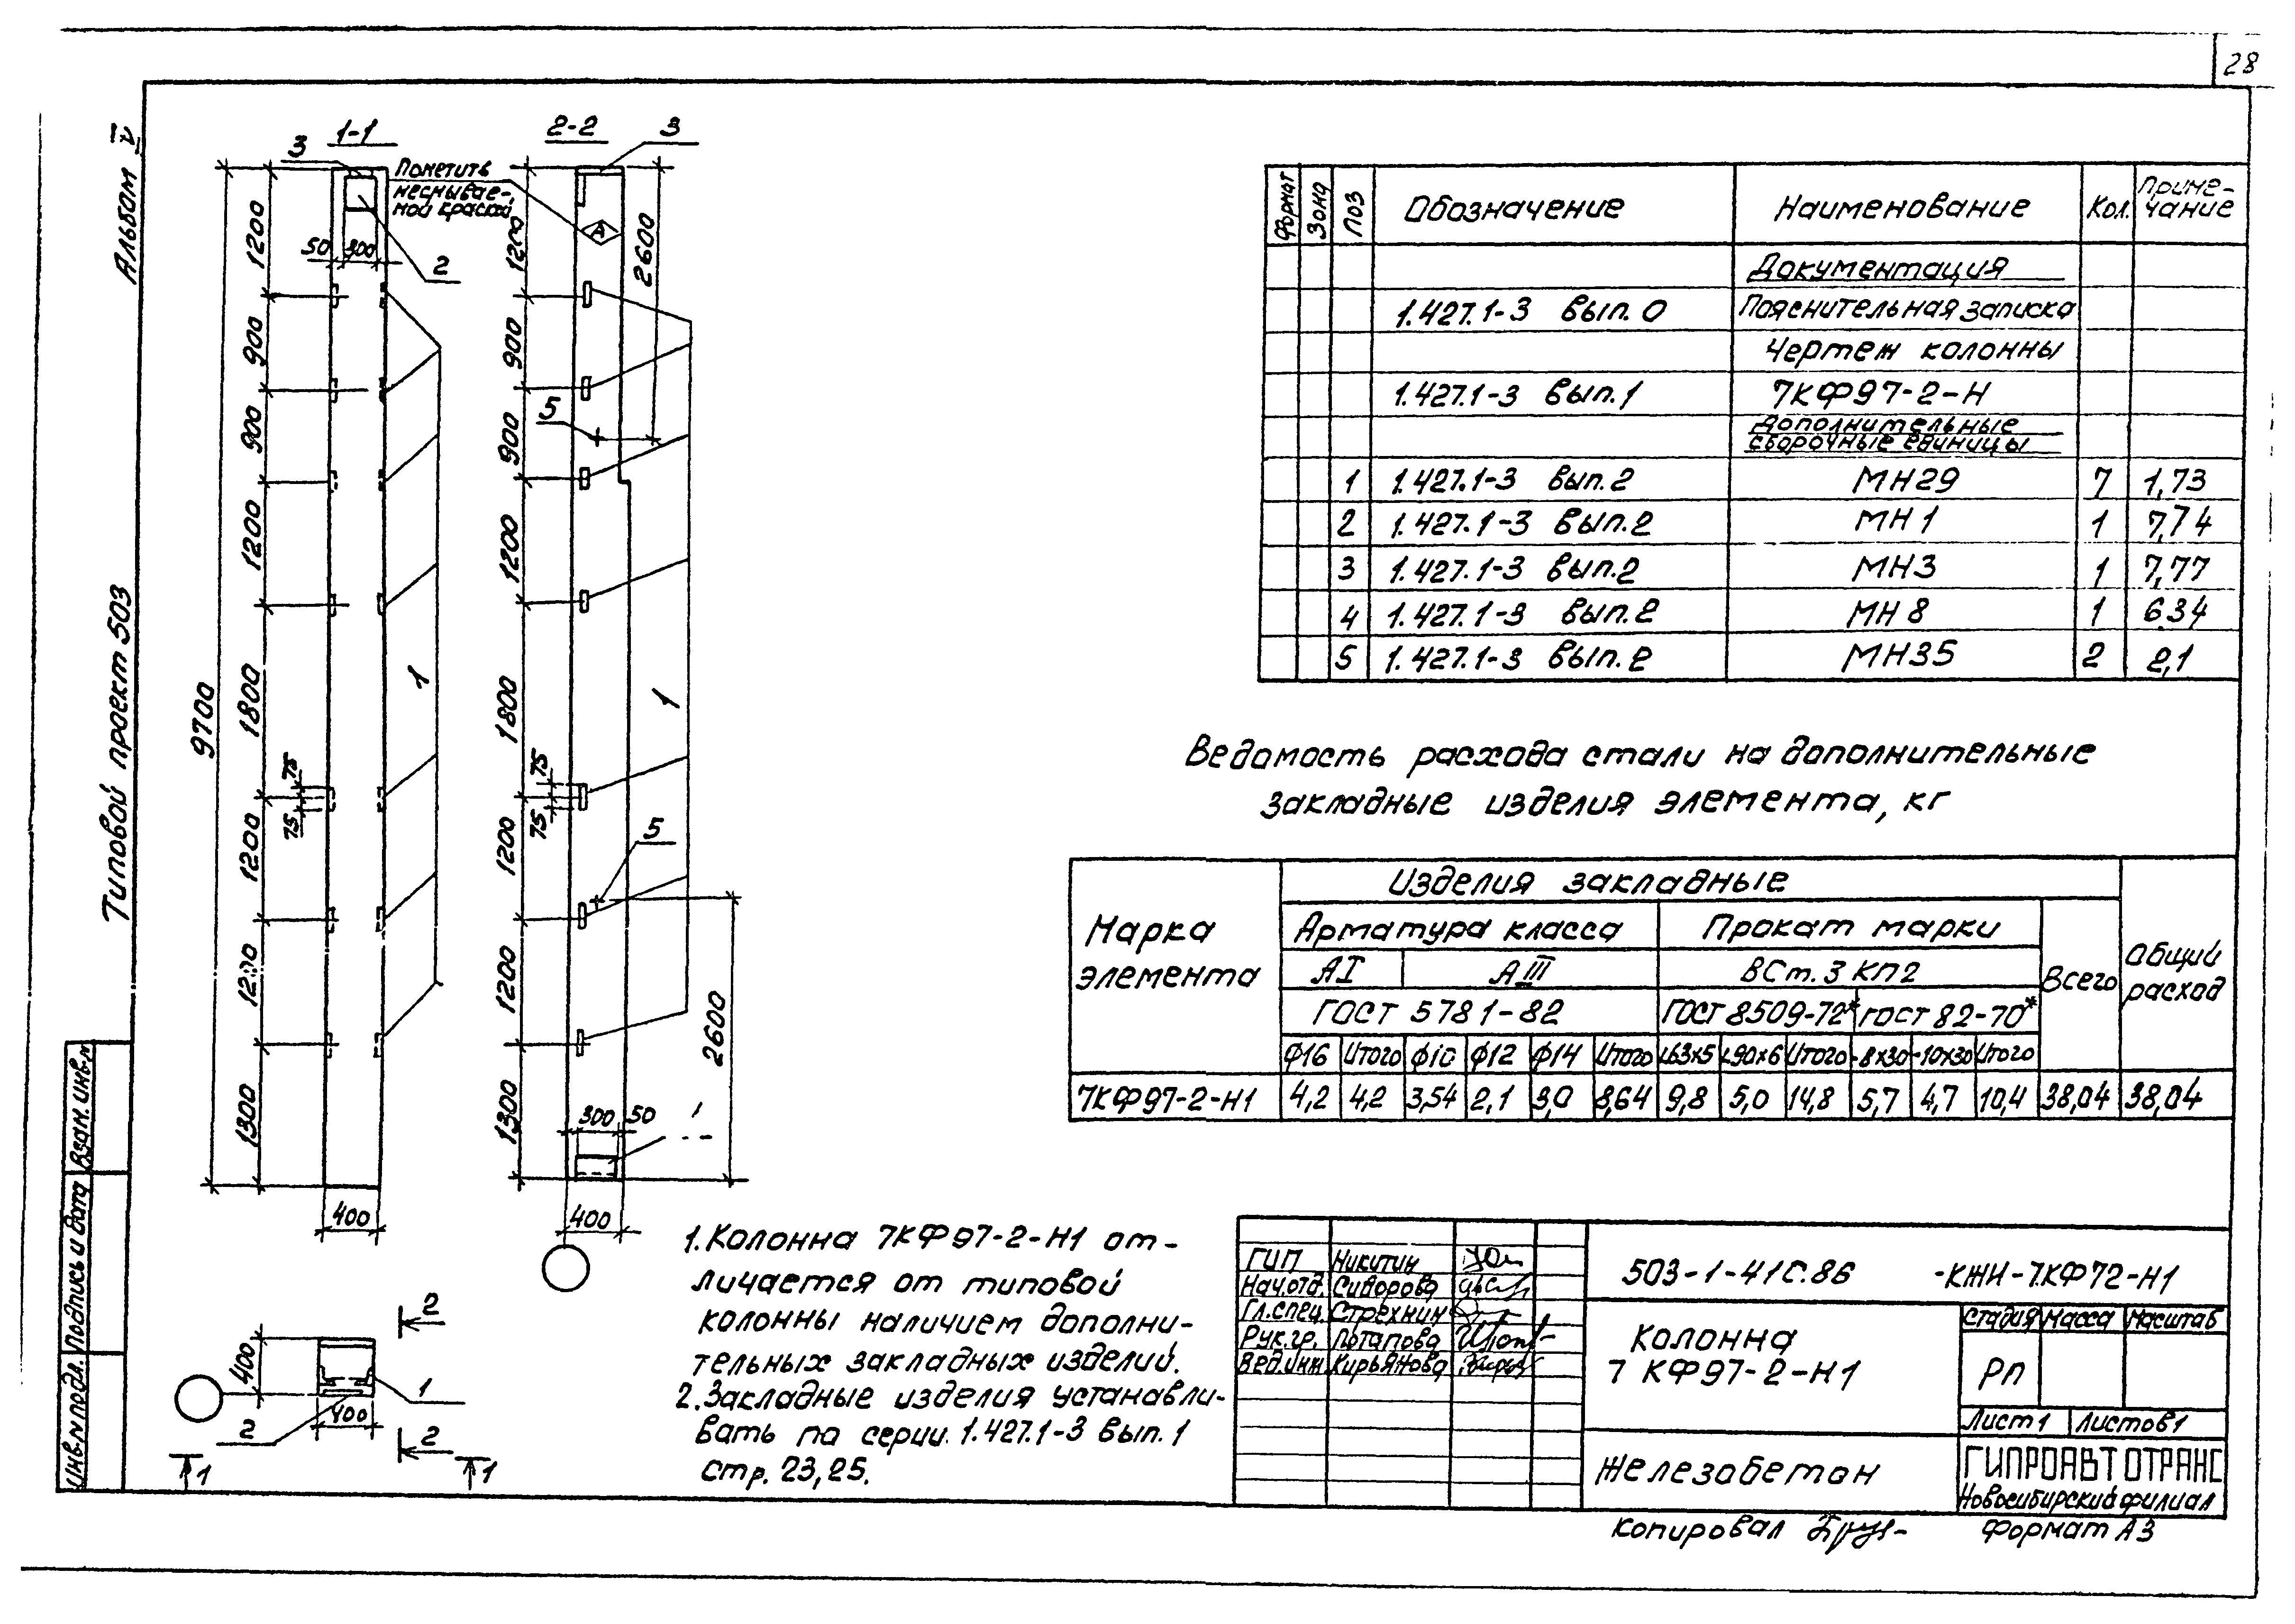 28
Альбом V
Типовой проект 503
Взам. инв. №
Подпись и дата
Инв. № подл.
1-1
3
Пометить
несмывае-
мой краской
2
50 300
9700
1200
900
900
1200
1800
75
75
1200
1200
1300
400
1
2-2
3
А
2600
1200
900
900
1200
1800
75
75
1200
1200
1300
5
1
5
2600
300 50
400
2
400
1
400
2
2
1
1
1. Колонна 7КФ97-2-Н1 от-
личается от типовой
колонны наличием дополни-
тельных закладных изделий.
2. Закладные изделия устанавли-
вать по серии 1.427.1-3 вып. 1
стр. 23, 25.
Формат Зона Поз Обозначение Наименование Кол. Приме-
чание
Документация
1.427.1-3 вып. 0 Пояснительная записка
Чертеж колонны
1.427.1-3 вып. 1 7КФ97-2-Н
Дополнительные
сборочные единицы
1 1.427.1-3 вып. 2 МН29 7 1,73
2 1.427.1-3 вып. 2 МН1 1 7,74
3 1.427.1-3 вып. 2 МН3 1 7,77
4 1.427.1-3 вып. 2 МН8 1 6.34
5 1.427.1-3 вып. 2 МН35 2 2,1
Ведомость расхода стали на дополнительные
закладные изделия элемента, кг
Марка
элемента
Изделия закладные
Арматура класса Прокат марки
АI АIII ВСт. 3 КП2
Всего
Общий
расход
ГОСТ 5781-82 ГОСТ 8509-72* ГОСТ 82-70*
ф16 Итого ф10 ф12 ф14 Итого L63х5 L90х6 Итого -8х30 -10х30 Итого
7КФ97-2-Н1 4,2 4,2 3,54 2,1 3,0 8,64 9,8 5,0 14,8 5,7 4,7 10,4 38,04 38,04
ГИП Никитин
Нач.отд. Сидорова
Гл.спец. Стрехнин
Рук.гр. Потапова
Вед.инж Кирьянова
503-1-41с.86 -КЖИ-7КФ72-Н1
Колонна
7 КФ97-2-Н1
Стадия Масса Масштаб
РП
Лист 1 Листов 1
Железобетон
ГИПРОАВТОТРАНС
Новосибирский филиал
Копировал
Формат А3